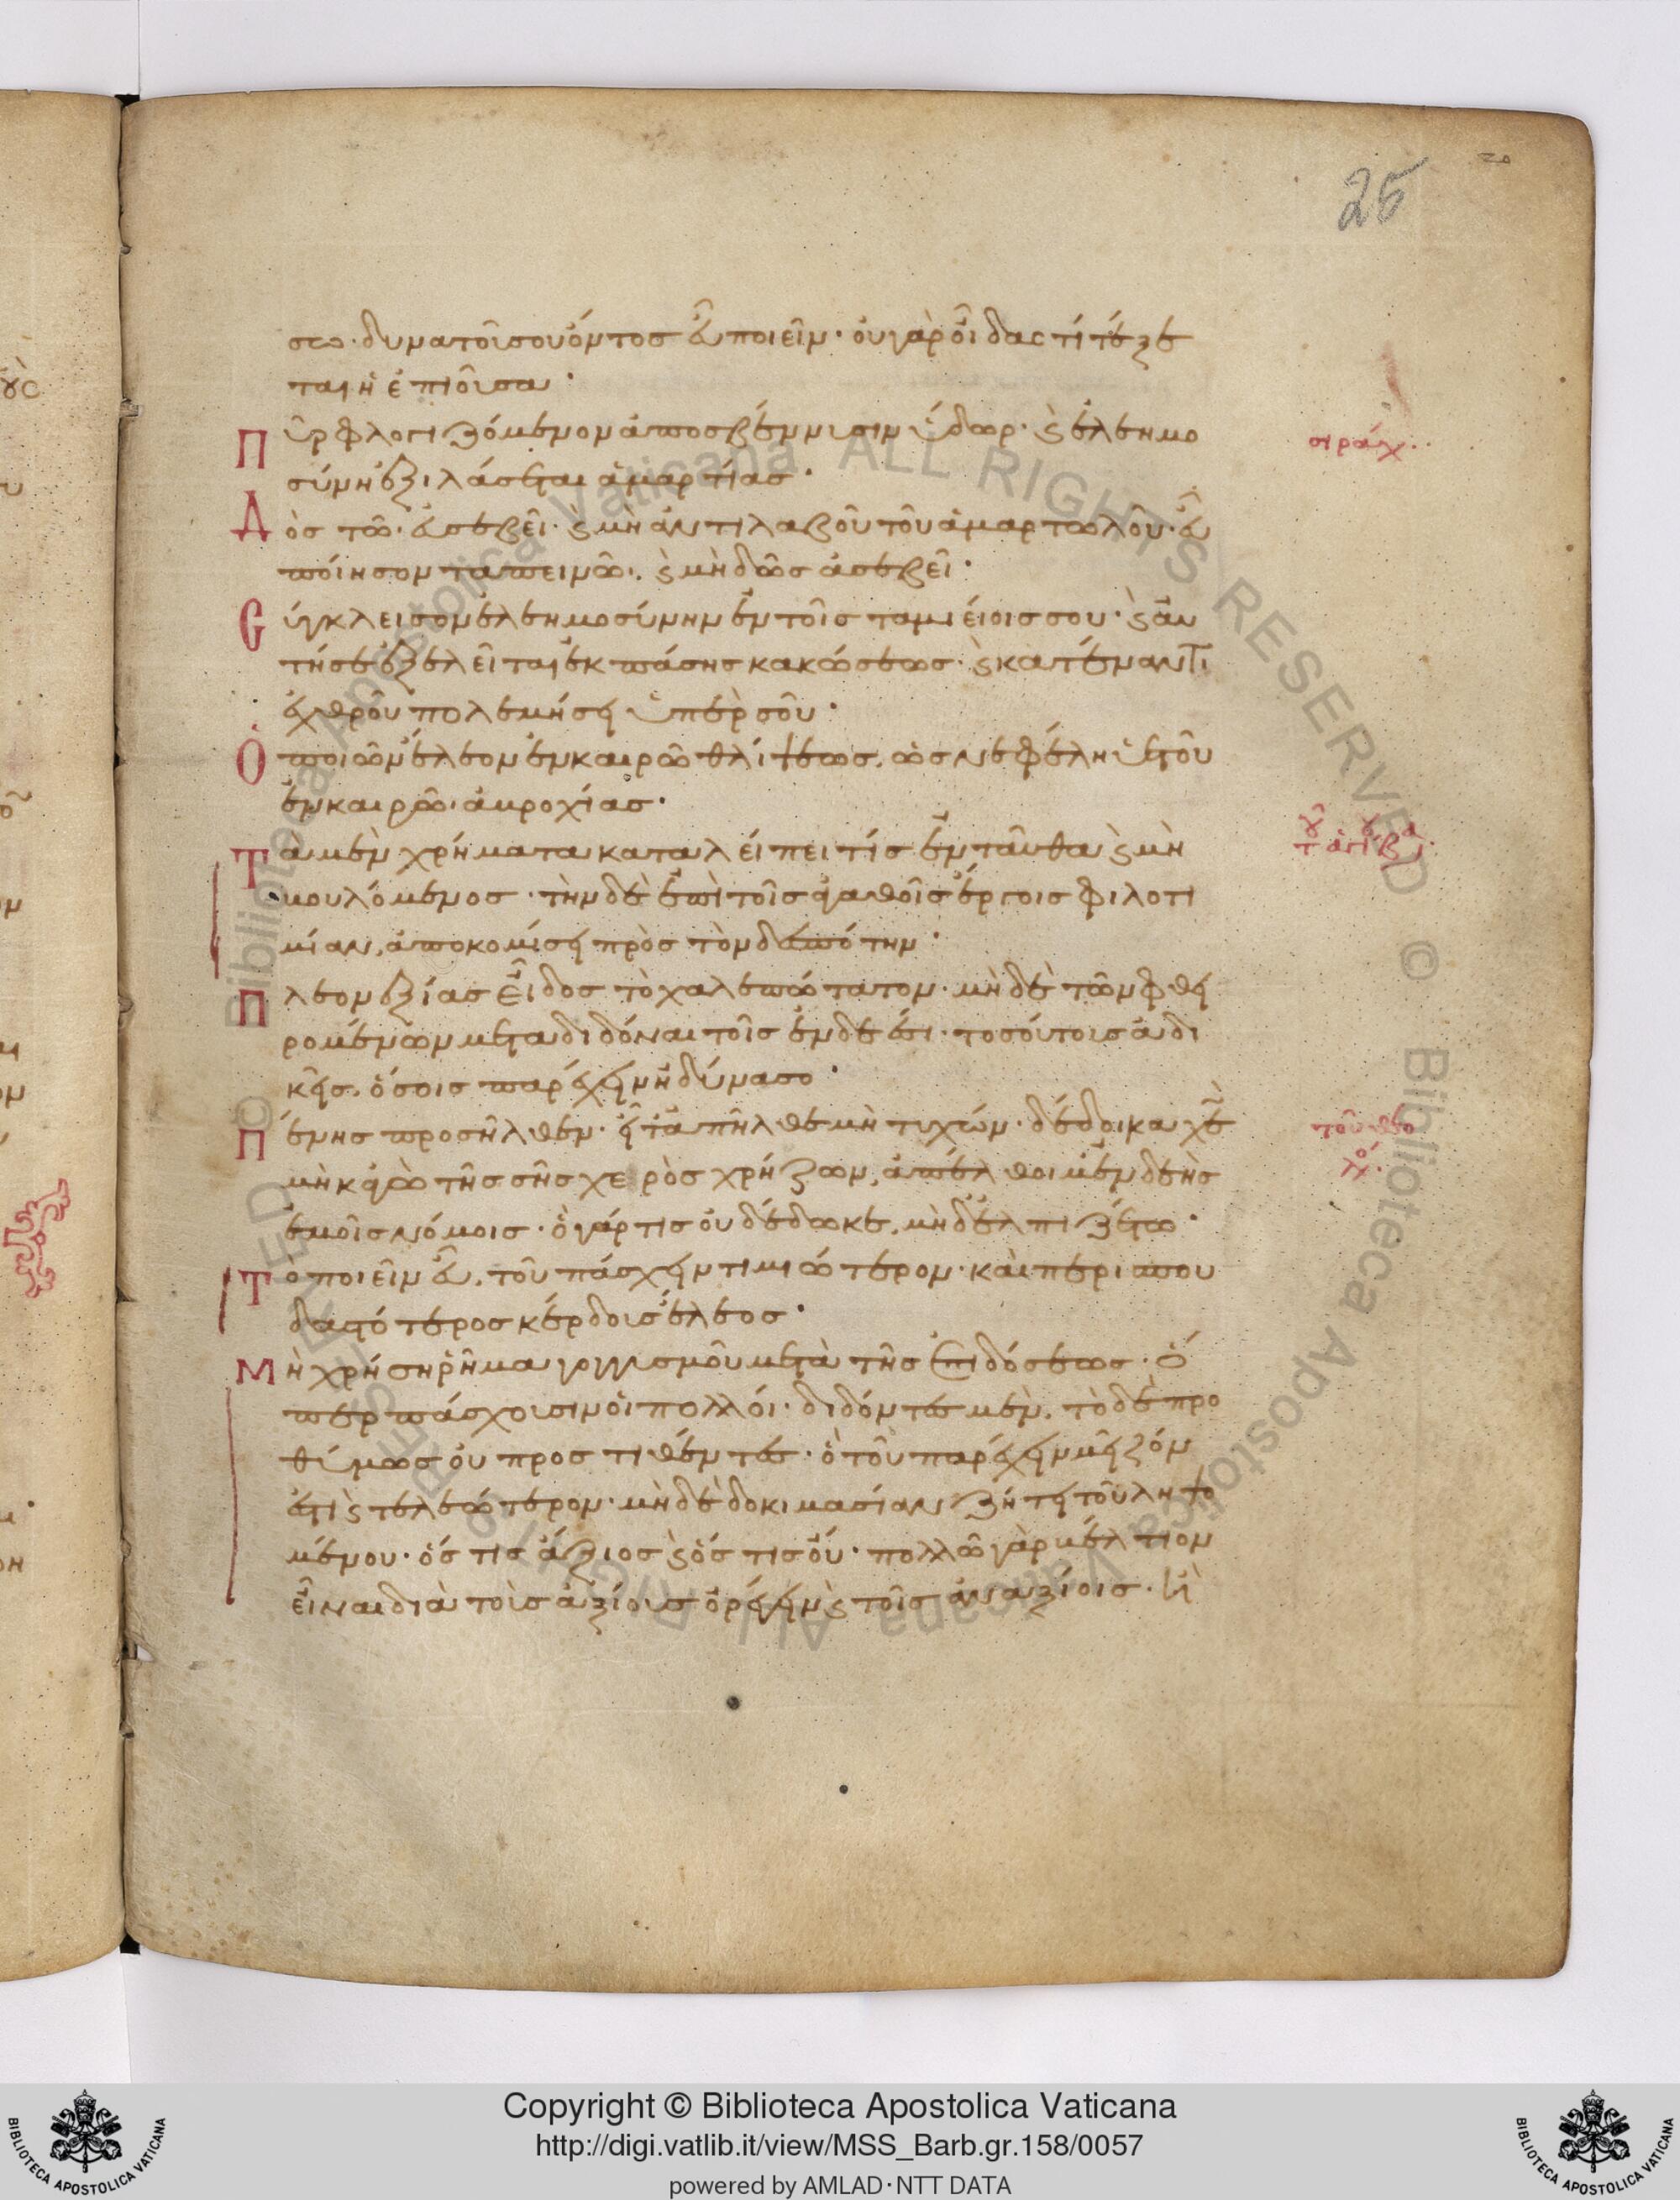 25
σω· δυνατοῦ σου ὄντος εὖ ποιεῖν· οὐ γὰρ οἶδας τί τέξε
ται ἡ ἐπιοῦσα·
Πῦρ φλογιζόμενον ἀποσβέννυσιν ὕδωρ· ϗ ἐλεημο
σιράχ·
σύνη ἐξιλάσεται ἁμαρτίας·
Δὸς τῶ εὐσεβεῖ· ϗ μὴ ἀντιλαβοῦ τοῦ ἁμαρτωλοῦ· εὖ
ποίησον ταπεινῶ, ϗ μὴ δῶς ἀσεβεῖ·
Σύγκλεισον ἐλεημοσύνην ἐν τοῖς ταμιείοις σου· ϗ αὕ
τη σε ἐξελεῖται ἐκ πάσης κακώσεως· ϗ κατέναντι
ἐχθροῦ πολεμήσει ὑπὲρ σοῦ·
Ὁποῖον ἔλεον ἐν καιρῶ θλίψεως, ὡς νεφέλη ὑετοῦ
ἐν καιρῶ ἀβροχίας·
Τὰ μὲν χρήματα καταλείπει τίς ἐνταῦθα ϗ μὴ
βουλόμενος· τὴν δὲ ἐπὶ τοῖς ἀγαθοῖς ἔργοις φιλοτι
μίαν, ἀποκομίσει πρὸς τὸν δεσπότην·
Πλεονεξίας εἶδος τὸ χαλεπώτατον· μὴ δὲ τῶν φθει
ρομένων μεταδιδόναι τοῖς ἐνδεέσι· τοσούτοις ἀδι
κεῖς, ὅσοις παρέχειν ἠδύνασο·
Πένης προσῆλθεν· εἶτα ἀπῆλθε μὴ τυχών· δέδοικα χε
τοῦ θεο
λό·
μὴ κἀγὼ τῆς σῆς χειρὸς χρήζων, ἀπέλθοι μὲν δεὴς
ἐμοῖς νόμοις· ὃ γάρ τις οὐ δέδωκε, μὴ δ' ἐλπιζέτω·
Τὸ ποιεῖν εὖ, τοῦ πάσχειν τιμιώτερον· καὶ περισπου
δαστότερος κέρδους ἔλεος·
Μὴ χρήση ῥῆμα γογγυσμοῦ μετὰ τῆς ἐπιδόσεως· ὅ
περ πάσχουσιν οἱ πολλοί· διδόντες μὲν, τὸ δὲ προ
θύμως οὐ προστιθέντες· ὃ τοῦ παρέχειν μεῖζόν
ἐστι ϗ τελεώτερον· μὴ δὲ δοκιμασίαν ζήτει τοῦ ληψο
μένου· ὅστις ἄξιος ϗ ὅστις οὔ· πολλῶ γὰρ βέλτιον
εἶναι διὰ τοὺς ἀξίους ὀρέγειν ϗ τοῖς ἀναξίοις· ἢ
Copyright © Biblioteca Apostolica Vaticana
http://digi.vatlib.it/view/MSS_Barb.gr.158/0057
powered by AMLAD·NTT DATA